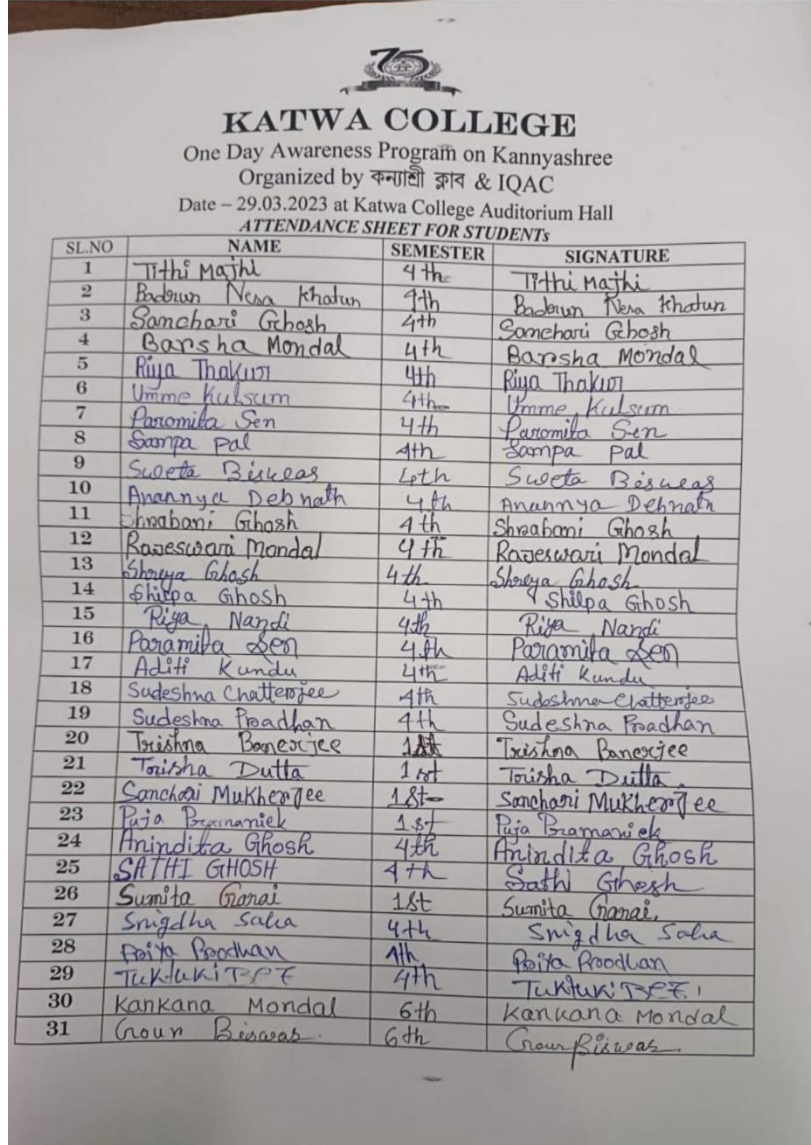 75
KATWA COLLEGE
One Day Awareness Program on Kannyashree
Organized by কন্যাশ্রী ক্লাব & IQAC
Date – 29.03.2023 at Katwa College Auditorium Hall
ATTENDANCE SHEET FOR STUDENTs
SL.NO NAME SEMESTER SIGNATURE
1 Tithi Majhi 4th Tithi Majhi
2 Badrun Nesa Khatun 4th Badrun Nesa Khatun
3 Sanchari Ghosh 4th Sanchari Ghosh
4 Barsha Mondal 4th Barsha Mondal
5 Riya Thakur 4th Riya Thakur
6 Umme Kulsum 4th Umme Kulsum
7 Paromita Sen 4th Paromita Sen
8 Sampa pal 4th Sampa pal
9 Sweta Biswas 4th Sweta Biswas
10 Anannya Debnath 4th Anannya Debnath
11 Shrabani Ghosh 4th Shrabani Ghosh
12 Rajeswari Mondal 4th Rajeswari Mondal
13 Shreya Ghosh 4th Shreya Ghosh
14 Shilpa Ghosh 4th Shilpa Ghosh
15 Riya Nandi 4th Riya Nandi
16 Paramita Sen 4th Paramita Sen
17 Aditi Kundu 4th Aditi Kundu
18 Sudeshna Chatterjee 4th Sudeshna Chatterjee
19 Sudeshna Pradhan 4th Sudeshna Pradhan
20 Trishna Banerjee 1st Trishna Banerjee
21 Trisha Dutta 1st Trisha Dutta
22 Sanchari Mukherjee 1st Sanchari Mukherjee
23 Puja Pramaniek 1st Puja Pramaniek
24 Anindita Ghosh 4th Anindita Ghosh
25 SATHI GHOSH 4th Sathi Ghosh
26 Sumita Garai 1st Sumita Garai.
27 Snigdha Saha 4th Snigdha Saha
28 Priya Proodhan 4th Priya Proodhan
29 Tuktuki 4th Tuktuki
30 Kankana Mondal 6th Kankana Mondal
31 Gour Biswas. 6th Gour Biswas.